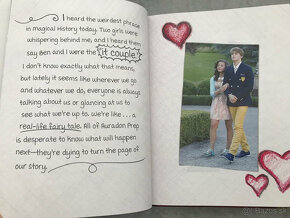 I heard the weirdest phrase
in magical History today. Two girls were
whispering behind me, and I heard them
say Ben and I were the it couple.
I don't know exactly what that means,
but lately it seems like wherever we go
and whatever we do, everyone is always
talking about us or glancing at us to
see what we're up to. we're like... a
real-life fairy tale. All of Auradon Prep
is desperate to know what will happen
next—they're dying to turn the page of
our story.